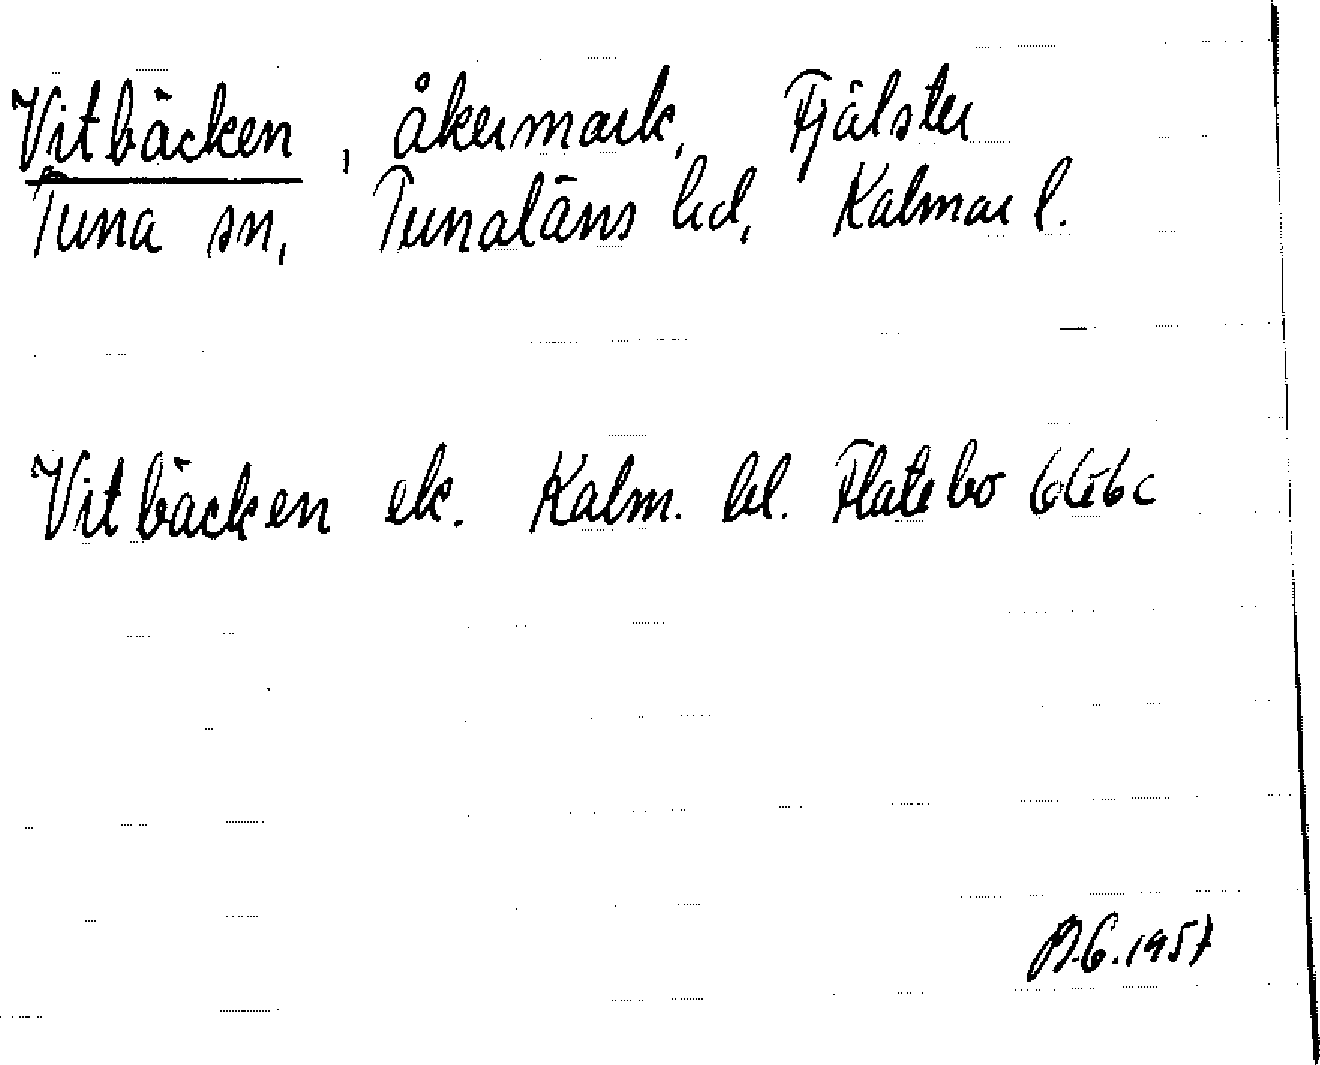 Vitbäcken, åkermark, Fjälster
Tuna sn, Tunaläns hd, Kalmar l.
Vitbäcken ek. Kalm. bl. Flatebo 6G6c
1957